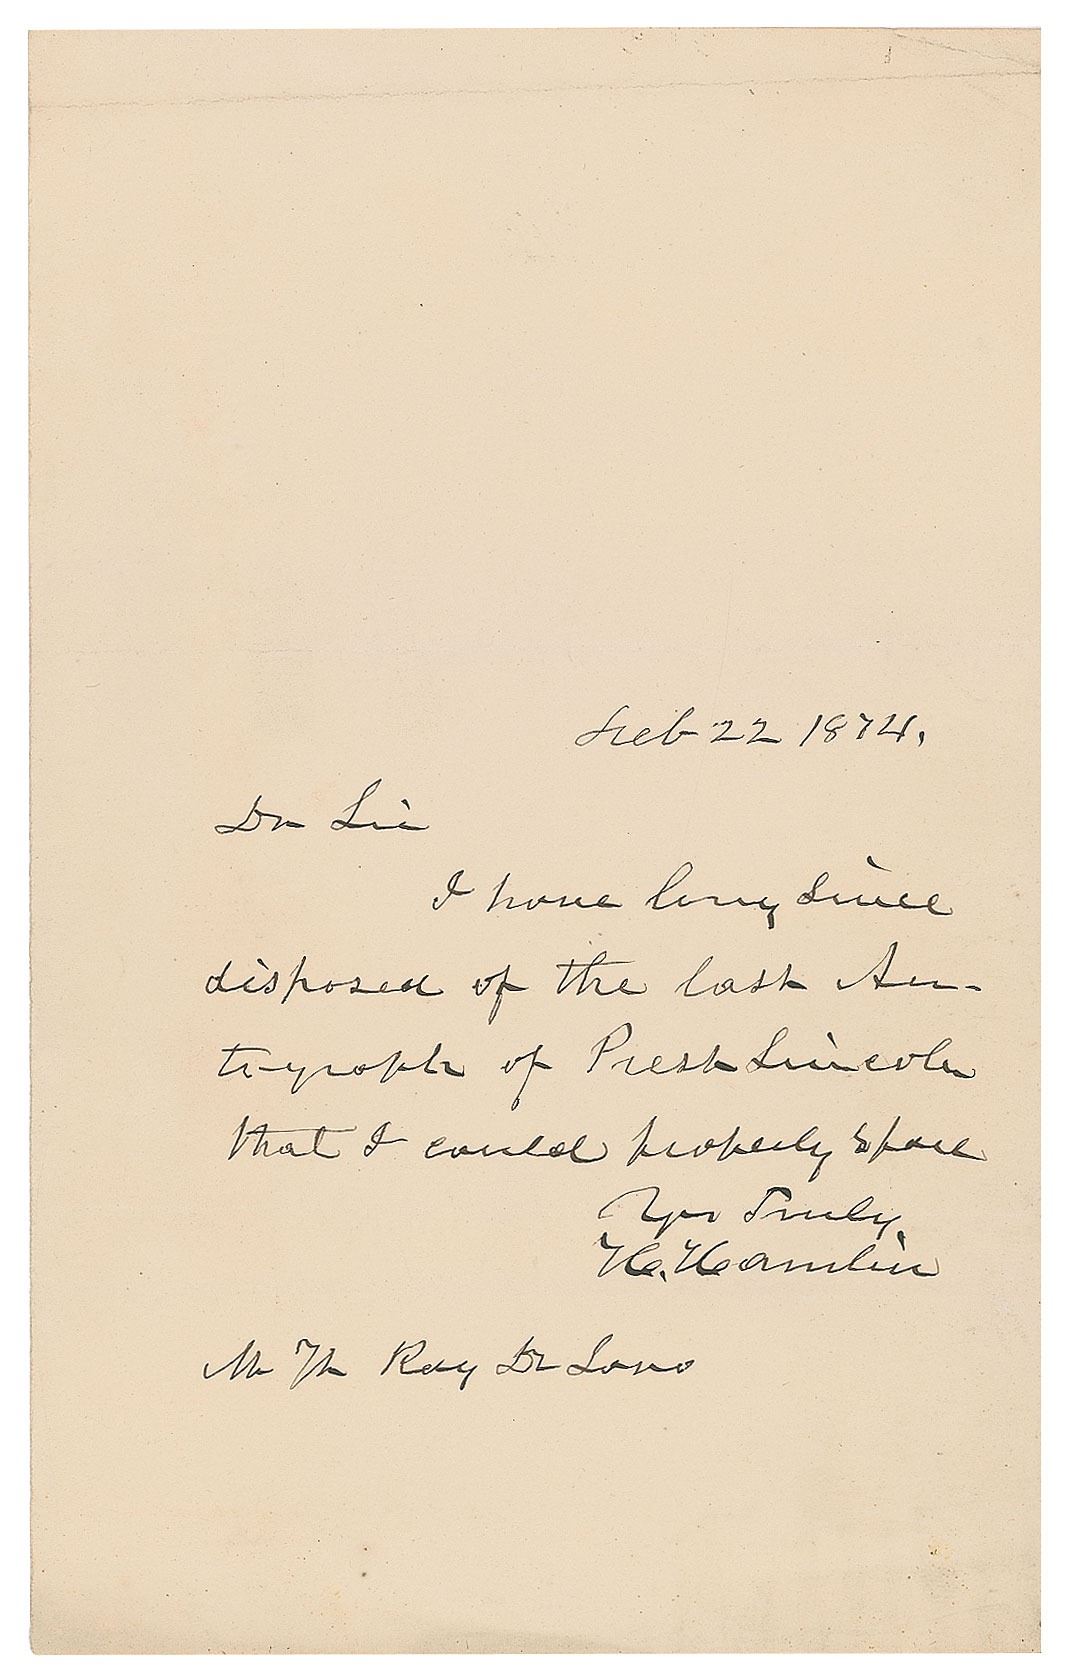 Feb 22 1874.
Dr Sir
I have long since
disposed of the last Au-
tograph of Prest Lincoln
that I could properly spare
Yrs Truly,
H. Hamlin
Mr Ray De